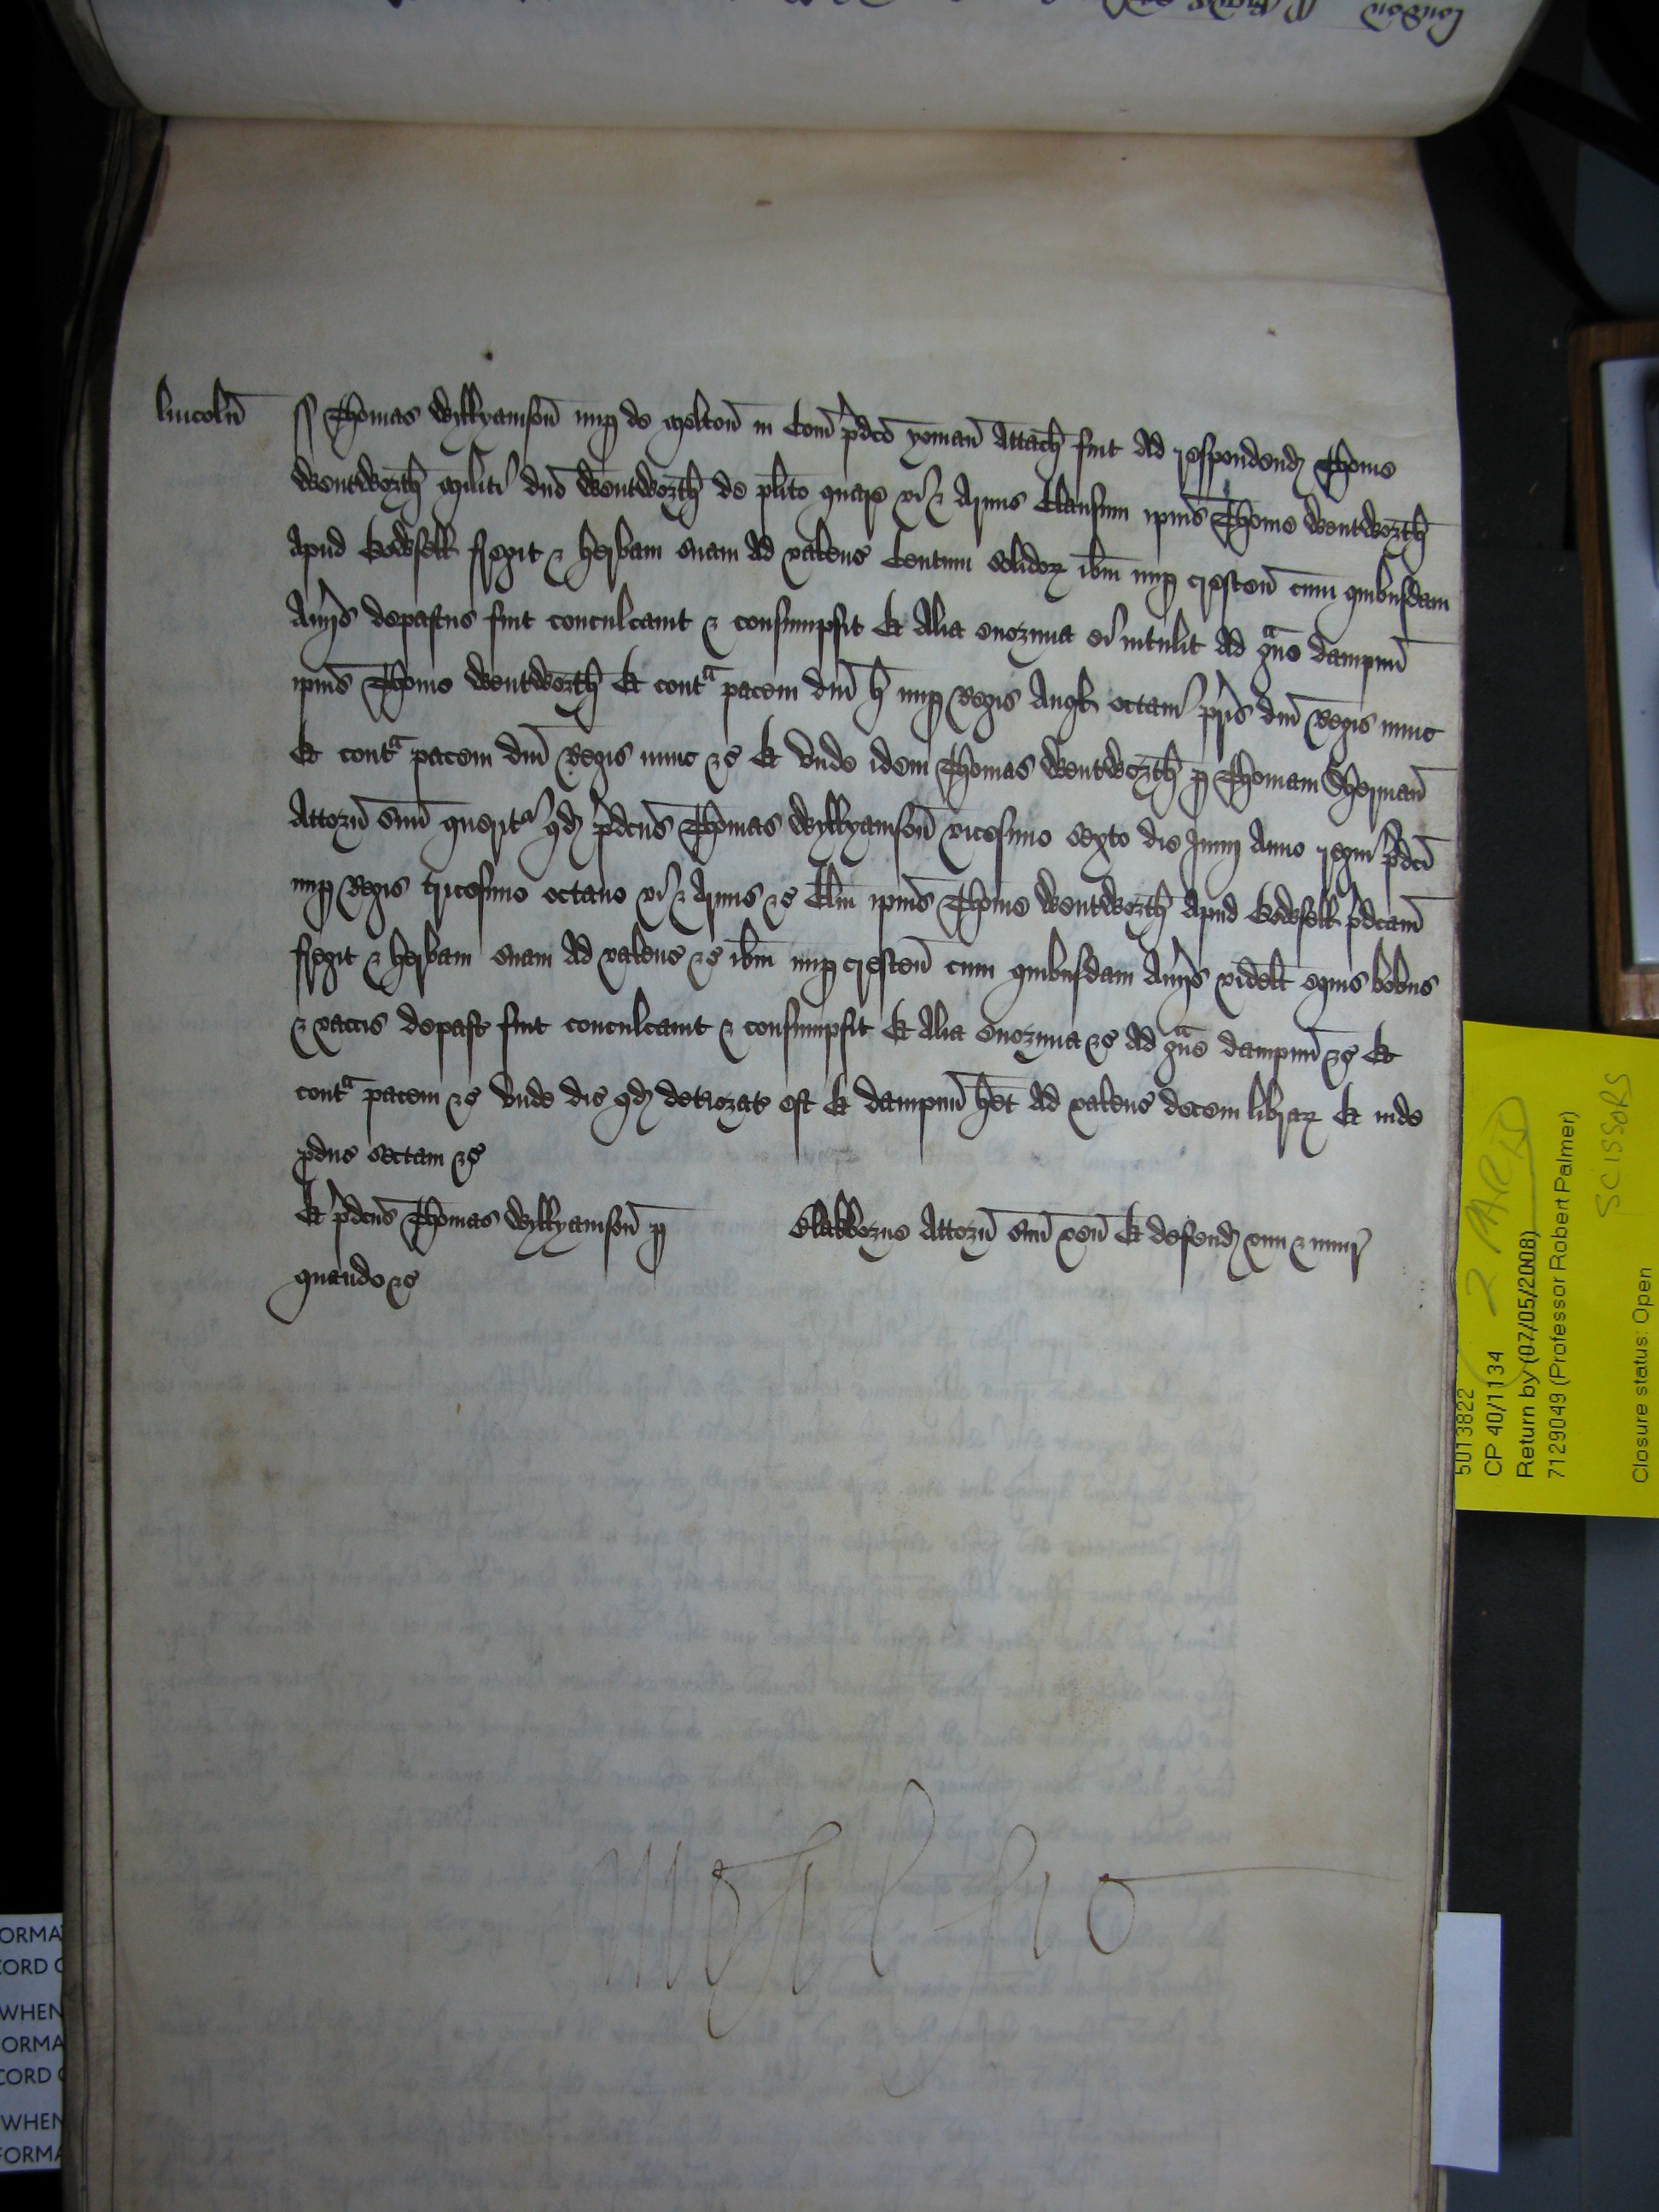 london
lincoln̄ ss Thomas Wyllyamson̄ nup de Melton̄ in Com̄ p̄dco yoman̄ Attach fuit Ad respondend Thome
Wentworth militi dn̄o Wentworth de plito quare vi & Armis Clausum ip̄ius Thome Wentworth
Apud fregit & herbam suam Ad valenc Centum solidoꝝ ib̄m nup crescen̄ cum quibusdam
Auijs depastus fuit conculcauit & consumpsit Et Alia enormia ei intulit Ad gᵃue dampnū
ip̄ius Thome Wentworth Et contᵃ pacem dn̄i H nup Regis Angl octaui pr̄is dn̄i Regis nunc
Et contᵃ pacem dn̄i Regis nunc &c Et Unde idem Thomas Wentworth p Thomam Sherman̄
Attorn̄ suū queritʳ qd p̄dcus Thomas Wyllyamson̄ vicesimo sexto die Junij Anno regni p̄dci
nup Regis tricesimo octauo vi & Armis &c Clm̄ ip̄ius Thome Wentworth Apud p̄dcam
fregit & herbam suam Ad valenc &c ib̄m nup crescen̄ cum quibusdam Auijs videlt equis bobus
& vaccis depast fuit conculcauit & consumpsit Et Alia enormia &c Ad gᵃue dampnū &c Et
contᵃ pacem &c Unde dic qd deteriorat est Et dampnū het Ad valenc decem libraꝝ Et inde
pduc sectam &c
Et p̄dcus Thomas Wyllyamson̄ p Clabborne Attorn̄ suū ven̄ Et defend vim & iniur
quando &c
5013822
CP 40/1134
2 PARTS
Return by (07/05/2008)
7129049 (Professor Robert Palmer)
SCISSORS
Closure status: Open
ORMA
CORD
WHEN
ORMA
CORD
WHEN
FORMA